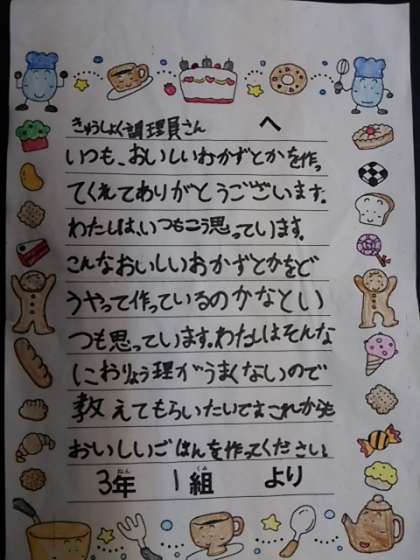 きゅうしょく調理員さん へ
いつも、おいしいおかずとかを作っ
てくれてありがとうございます。
わたしは、いつもこう思っています。
こんなおいしいおかずとかをど
うやって作っているのかなとい
つも思っています。わたしはそんな
におりょう理がうまくないので
教えてもらいたいです。これからも
おいしいごはんを作ってください。
3年 1組 より
ねん くみ